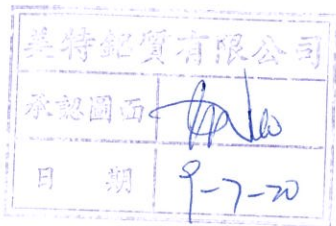 英特鋁質有限公司
承認圖面
日 期 9-7-20